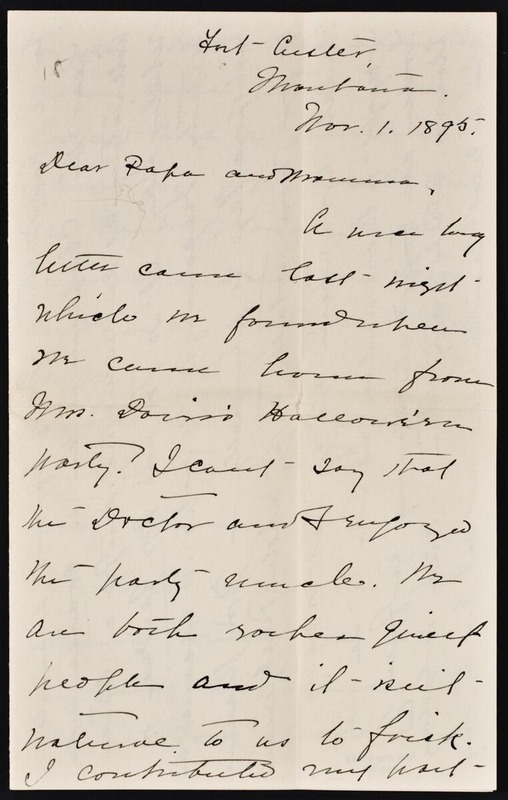 18
Fort Custer,
Montana.
Nov. 1. 1895.
Dear Papa and Mamma,
A nice long
letter came last night
which we found when
we came home from
Mrs. Davis's Hallowe'en
party. I can't say that
the Doctor and I enjoyed
the party much. We
are both rather quiet
people and it isn't
natural to us to frisk.
I contributed my part